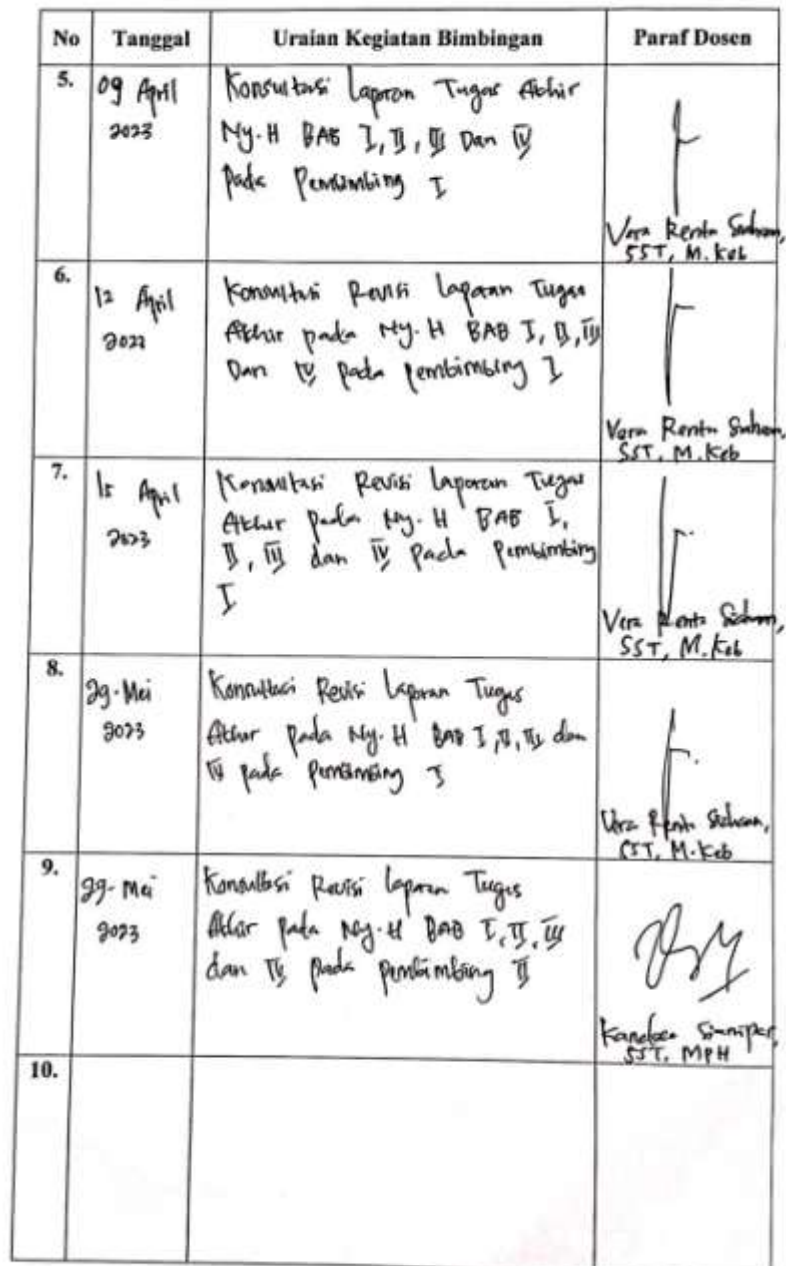 No Tanggal Uraian Kegiatan Bimbingan Paraf Dosen
5.
09 April
2023
Konsultasi Laporan Tugas Akhir
Ny. H BAB I, II, III Dan IV
Pada Pembimbing I
Vera Renta
SST, M. Keb
6.
12 April
Konsultasi Revisi Laporan Tugas
Akhir pada Ny. H BAB I, II, III
Dan IV pada pembimbing I
Vera Renta
SST, M. Keb
7.
15 April
2023
Konsultasi Revisi Laporan Tugas
Akhir pada Ny. H BAB I,
II, III dan IV pada Pembimbing
I
Vera Renta
SST, M. Keb
8.
29-Mei
2023
Konsultasi Revisi Laporan Tugas
Akhir pada Ny. H BAB I, II, III dan
IV pada Pembimbing I
Vera Renta
SST, M. Keb
9.
29-Mei
2023
Konsultasi Revisi Laporan Tugas
Akhir pada Ny. H BAB I, II, III
dan IV pada pembimbing II
SST, MPH
10.